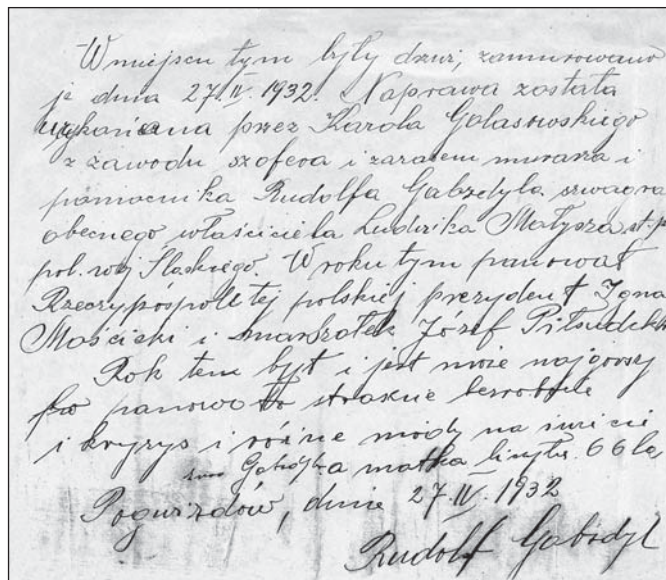 W miejscu tym były dzwi, zamurowano
je dnia 27.IV.1932. Naprawa została
wykonana przez Karola Golasowskiego
z zawodu szofera i zarazem murarza i
pomocnika Rudolfa Gabzdyla szwagra
obecnego właściciela Ludwika Małysza st. p
pol. woj Śląskiego. W roku tym panował
Rzeczypospolitej polskiej prezydent Igna
Mościcki i marszałek Józef Piłsudski
Rok ten był i jest może najgorszy
bo panowało straszne bezrobocie
i kryzys i różne mody na świecie
Gabzdyla matka liczyła 66 la
Pogwizdów, dnia 27.IV.1932
Rudolf Gabzdyl